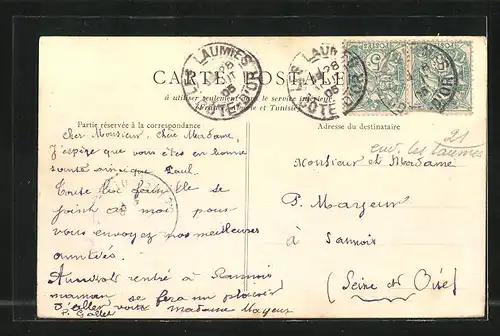 CARTE POSTALE
à utiliser seulement dans le service intérieur
(France, Algérie et Tunisie)
LES LAUMES
28
AOUT
05
COTE-D'OR
LES LAUMES
28
05
COTE-D'OR
POSTES
5
5
D'OR
Partie réservée à la correspondance
Adresse du destinataire
Cher Monsieur, chère Madame
J'espère que vous êtes en bonne
santé ainsi que Paul.
Toute la famille se
joint à moi pour
vous envoyer nos meilleures
amitiés.
Aussitôt rentré à Sannois
maman se fera un plaisir
d'aller voir madame Mayeur
P. Gallet
21
env. les Laumes
Monsieur et Madame
P. Mayeur
à Sannois
(Seine et Oise)